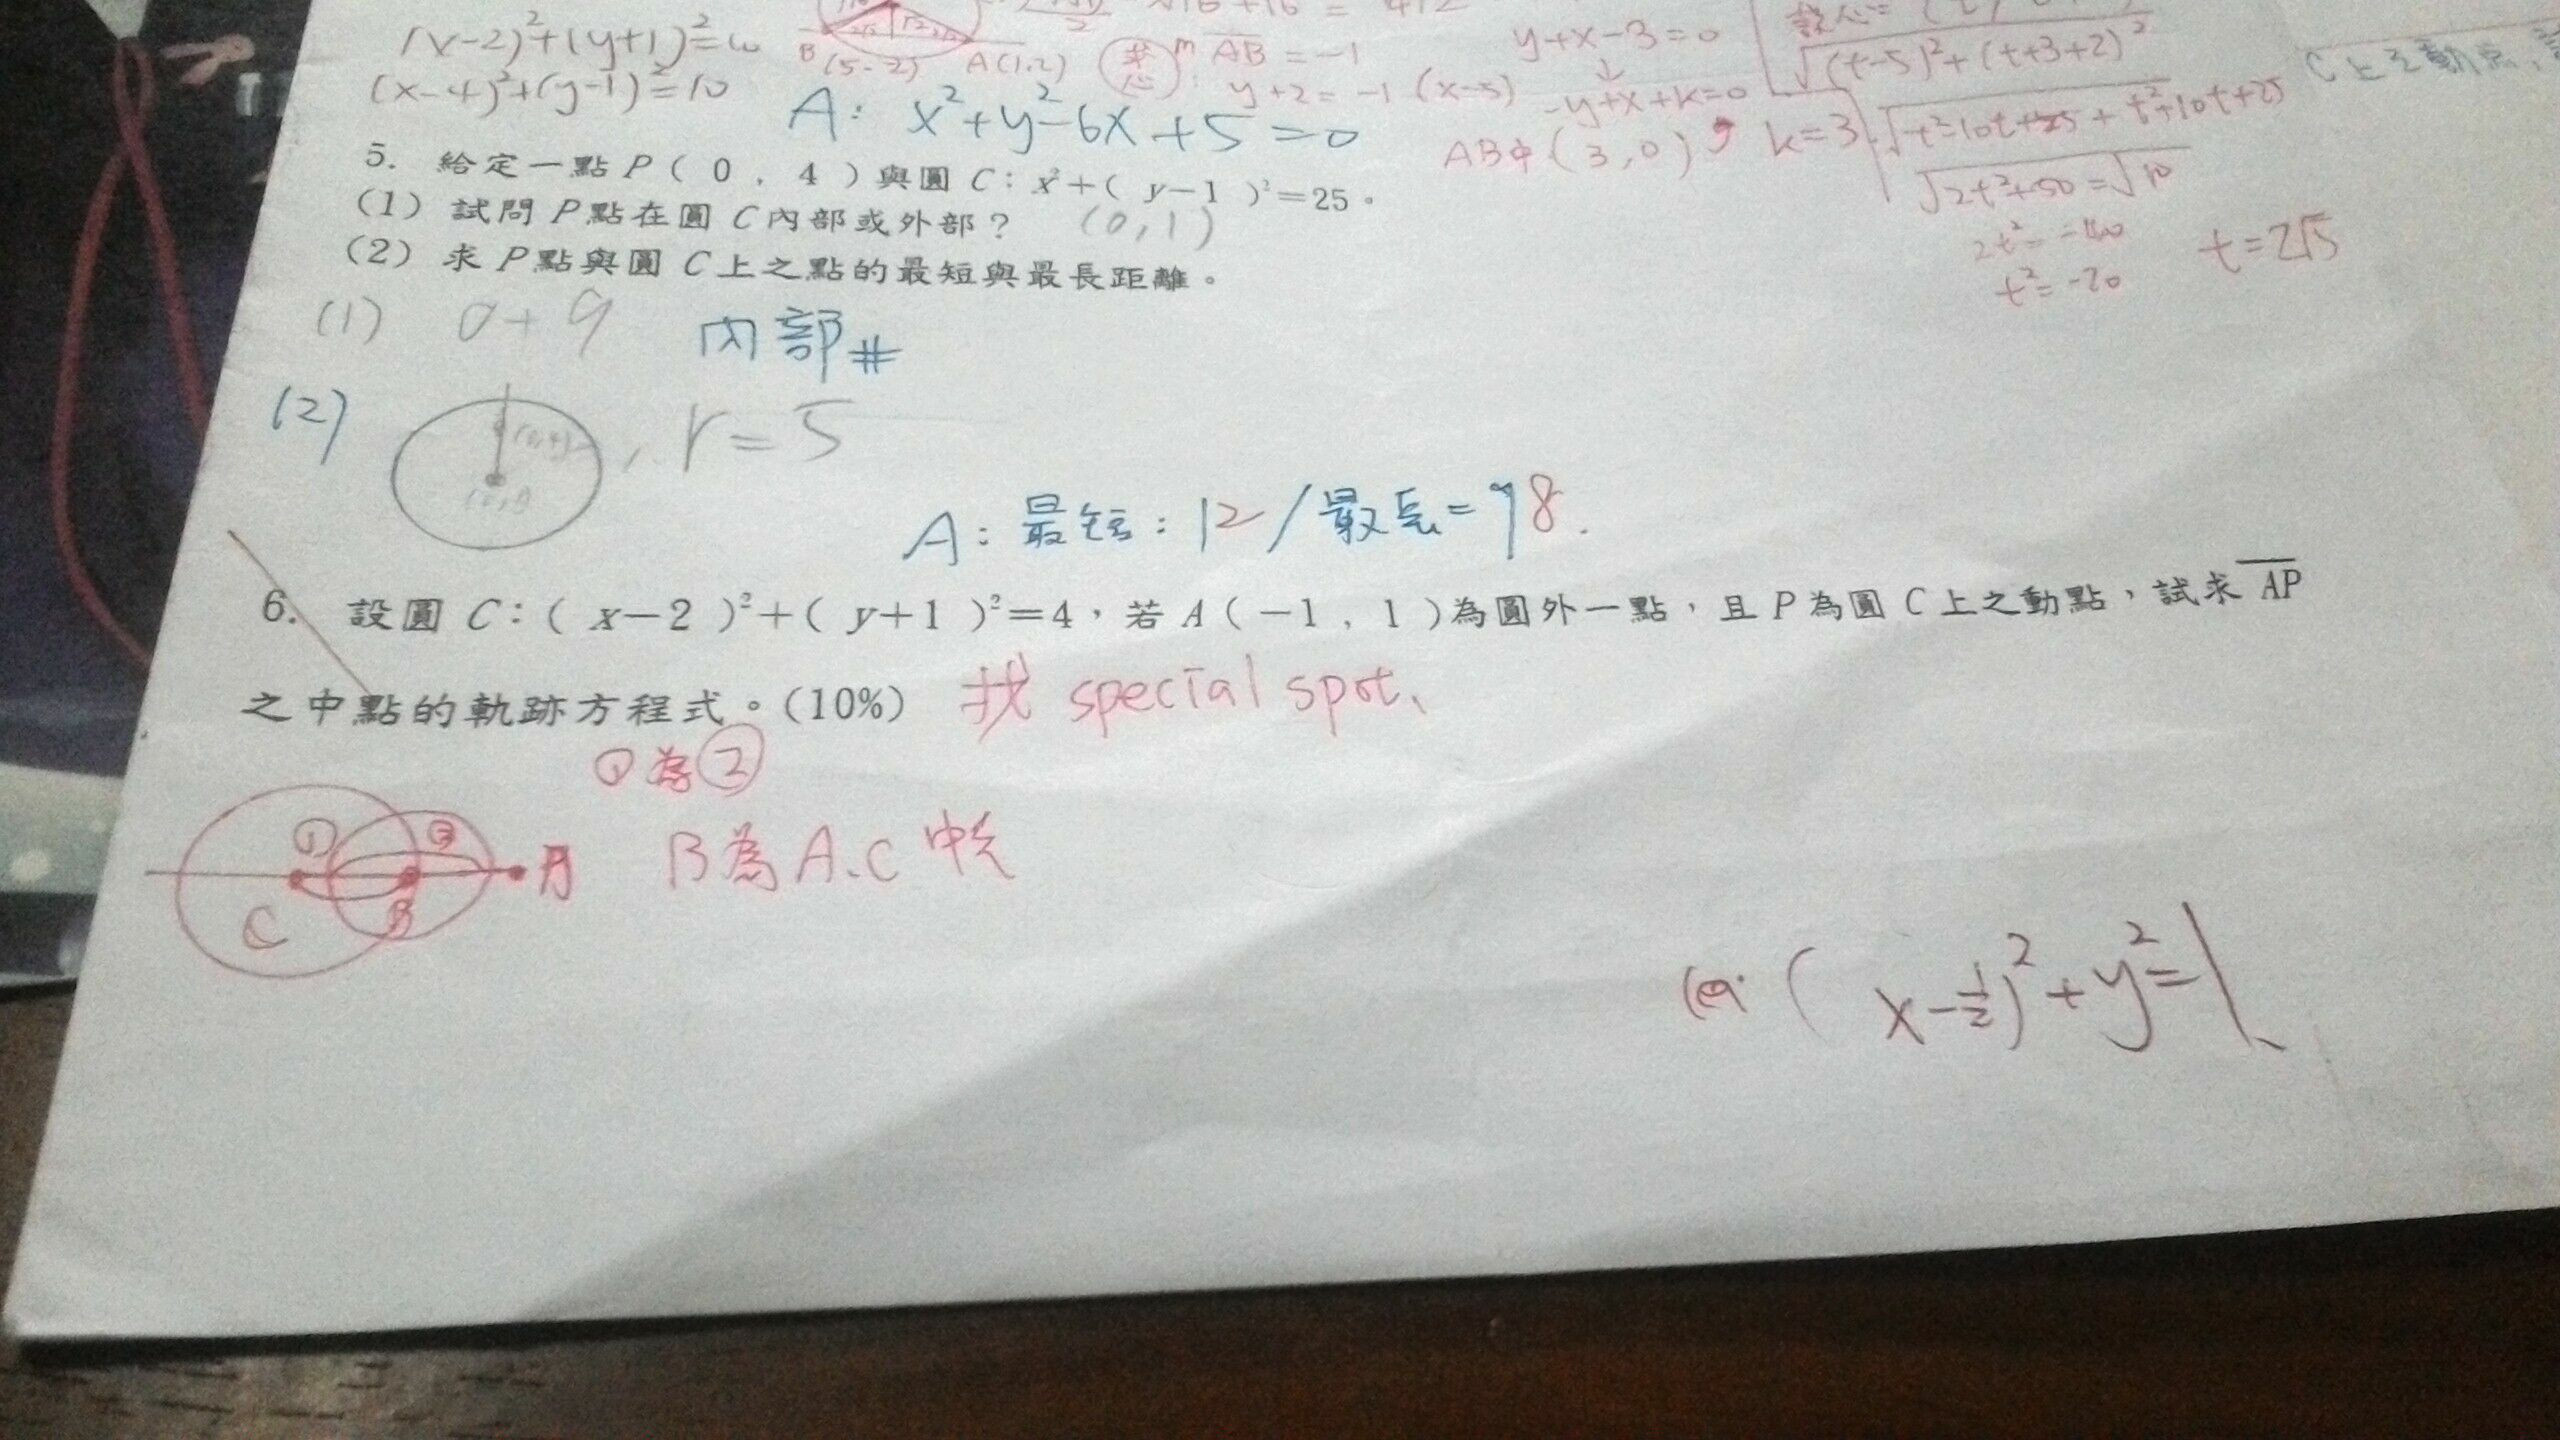 (x-2)²+(y+1)²=10
(x-4)²+(y-1)²=10
B (5,-2) A(1,2)
m AB = -1
y+2 = -1 (x-5)
y+x-3=0
-y+x+k=0
AB中(3,0), k=3
√(t-5)²+(t+3+2)²
√t²-10t+25 + t²+10t+25
√2t²+50 = √10
2t² = -40
t² = -20
t=2√5
C上之動點,
A: x²+y²-6x+5=0
5. 給定一點P(0,4)與圓C:x²+(y-1)²=25。
(1) 試問P點在圓C內部或外部? (0,1)
(2) 求P點與圓C上之點的最短與最長距離。
(1) 0+9 內部#
(2) (0,4) , r=5
A: 最短: 2 / 最長= 8.
6. 設圓C:(x-2)²+(y+1)²=4,若A(-1,1)為圓外一點,且P為圓C上之動點,試求AP
之中點的軌跡方程式。(10%) 找 special spot、
①為②
① ② A
C B
B為A、C中點
(x-1/2)²+y²=1、